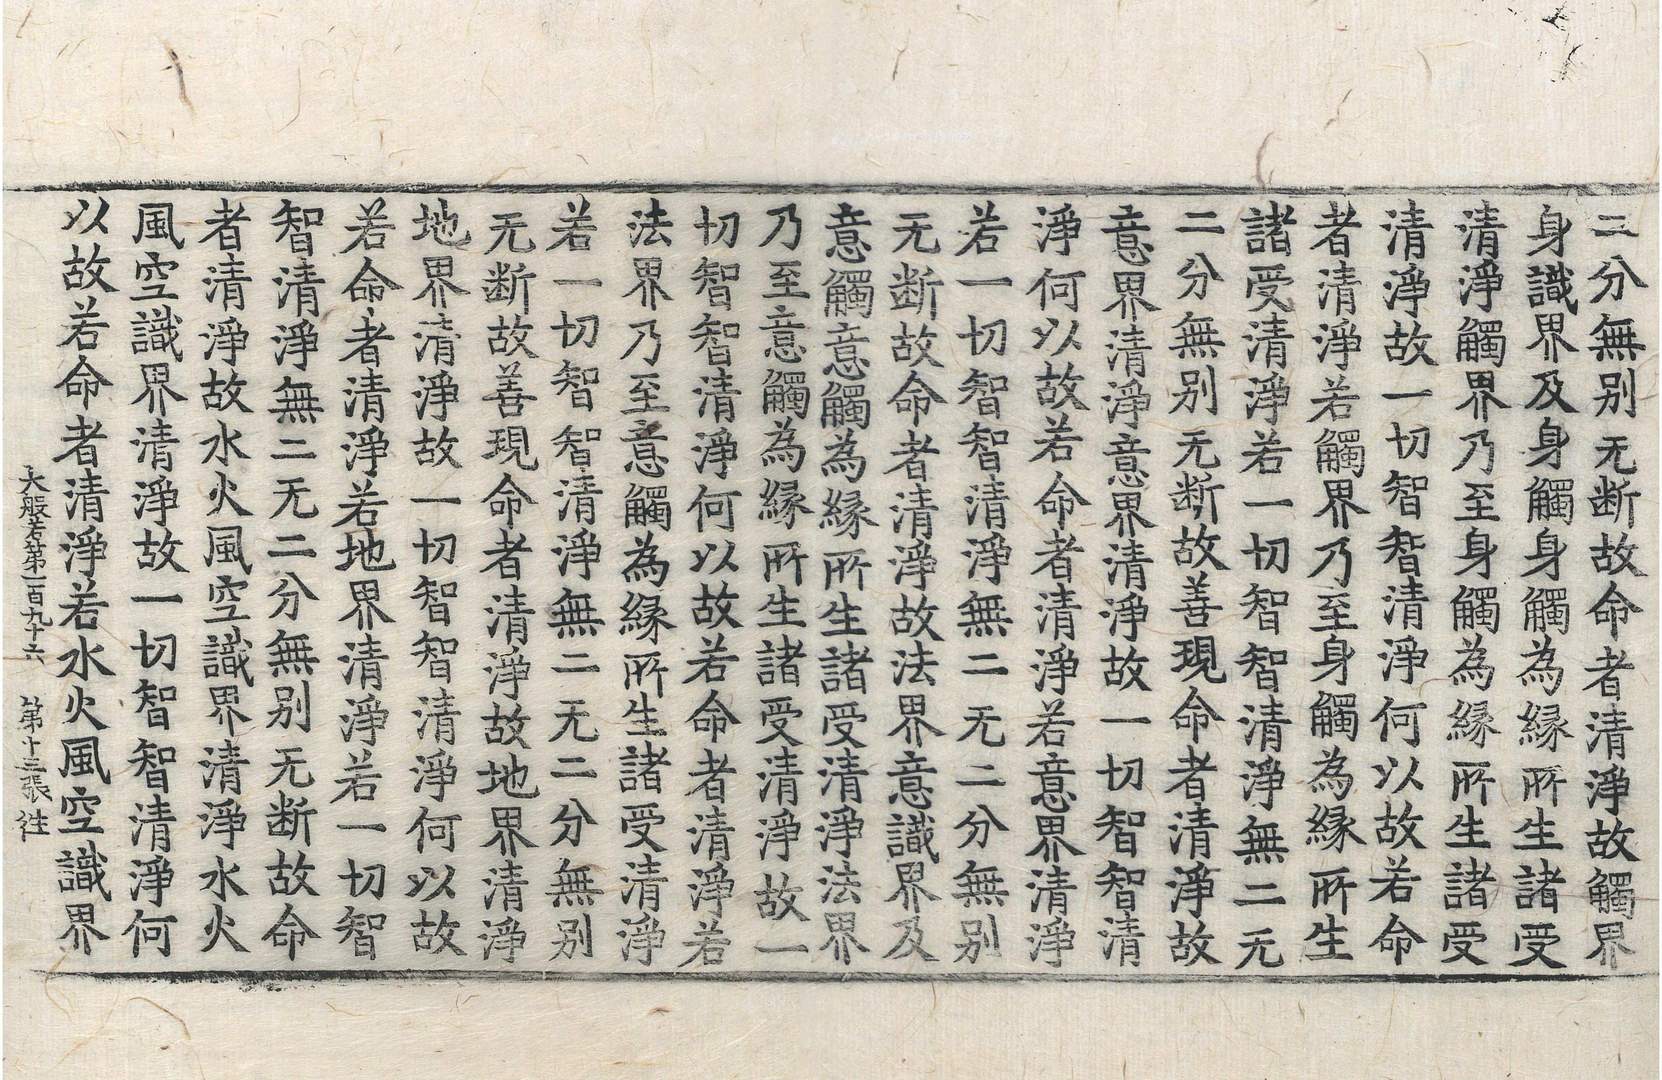 二分無別无断故命者清淨故觸界
身識界及身觸身觸為縁所生諸受
清淨觸界乃至身觸為縁所生諸受
清淨故一切智智清淨何以故若命
者清淨若觸界乃至身觸為縁所生
諸受清淨若一切智智清淨無二无
二分無別无断故善現命者清淨故
意界清淨意界清淨故一切智智清
淨何以故若命者清淨若意界清淨
若一切智智清淨無二无二分無別
无断故命者清淨故法界意識界及
意觸意觸為縁所生諸受清淨法界
乃至意觸為縁所生諸受清淨故一
切智智清淨何以故若命者清淨若
法界乃至意觸為縁所生諸受清淨
若一切智智清淨無二无二分無別
无断故善現命者清淨故地界清淨
地界清淨故一切智智清淨何以故
若命者清淨若地界清淨若一切智
智清淨無二无二分無別无断故命
者清淨故水火風空識界清淨水火
風空識界清淨故一切智智清淨何
以故若命者清淨若水火風空識界
大般若第一百九十六 第十三張 徃